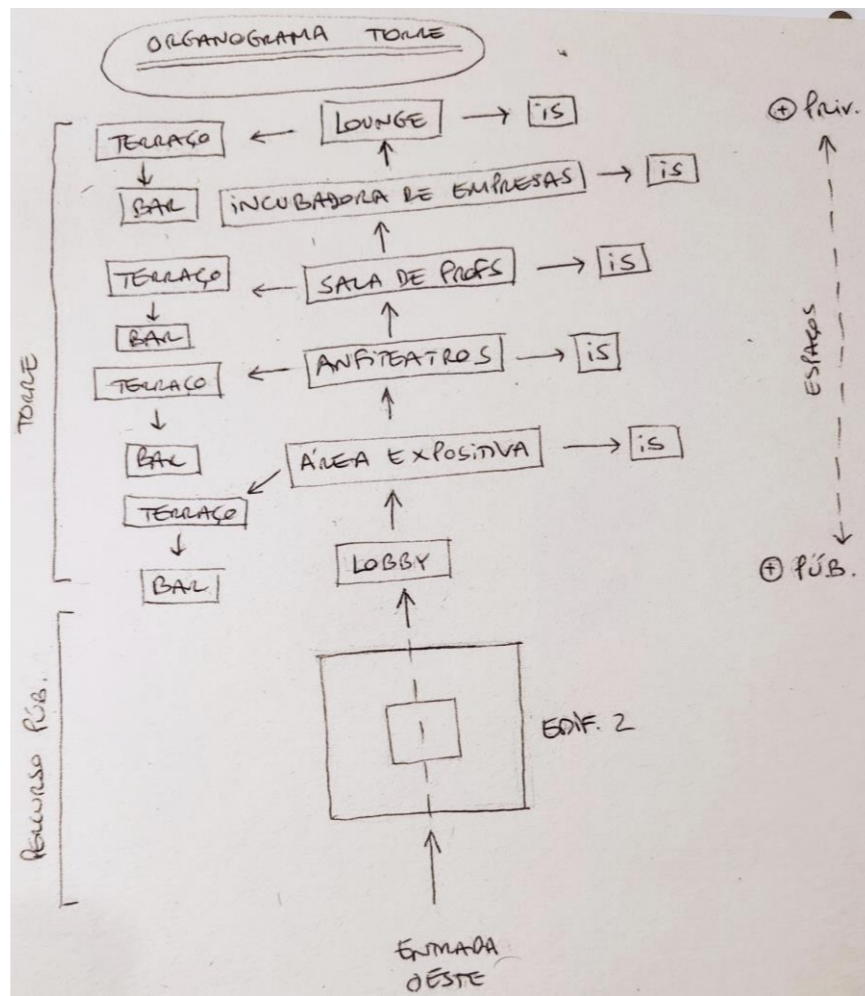 ORGANOGRAMA TORRE
TERRAÇO
LOUNGE
is
⊕ Priv.
BAR
INCUBADORA DE EMPRESAS
is
TERRAÇO
SALA DE PROFS
is
BAR
TERRAÇO
ANFITEATROS
is
ESPAÇOS
TORRE
BAR
ÁREA EXPOSITIVA
is
TERRAÇO
BAR
LOBBY
⊕ PÚB.
PERCURSO PÚB.
EDIF. 2
ENTRADA
OESTE